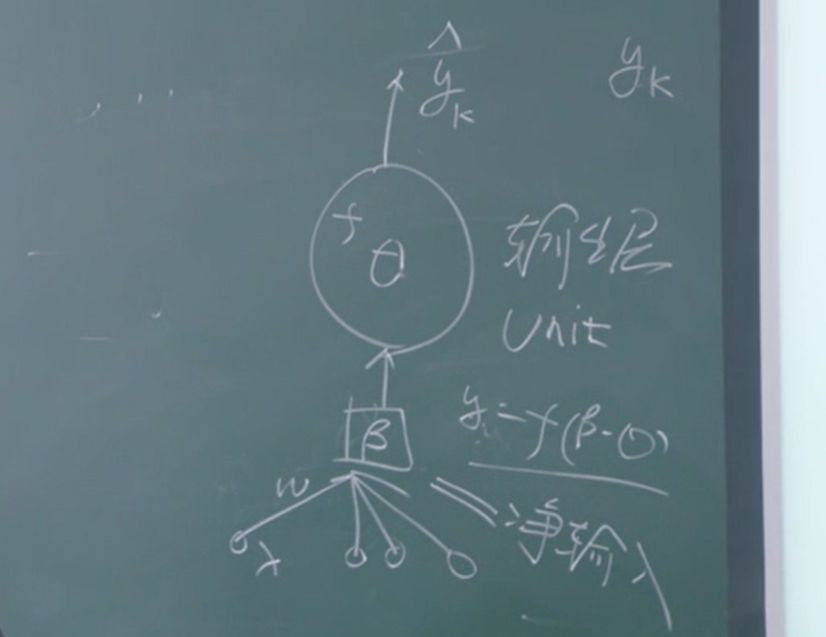 ŷ_k
y_k
f
θ
输出层
Unit
β
y = f(β-θ)
w
净输入